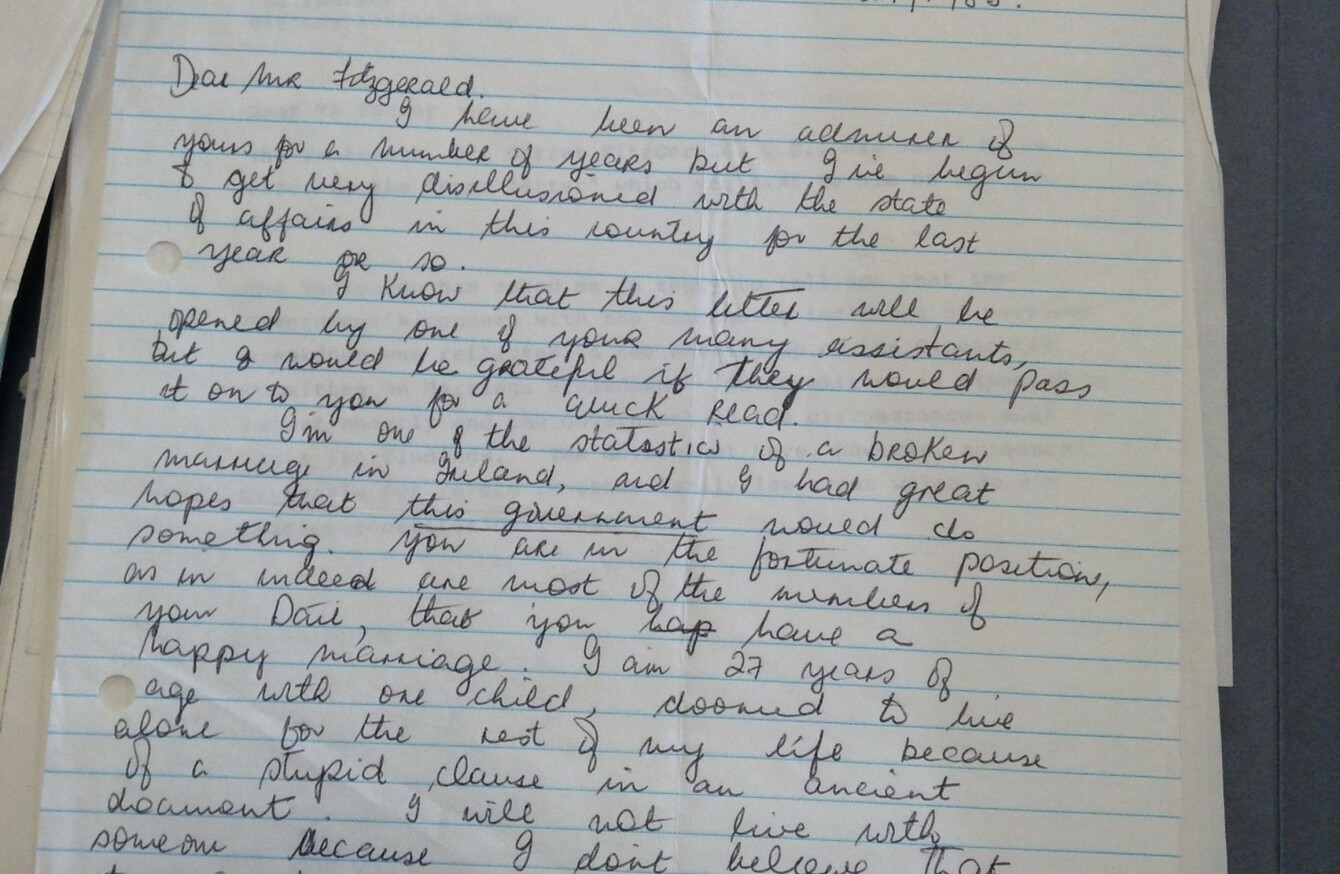 Dear Mr Fitzgerald.
I have been an admirer of
yours for a number of years but I've begun
to get very disillusioned with the state
of affairs in this country for the last
year or so.
I know that this letter will be
opened by one of your many assistants,
but I would be grateful if they would pass
it on to you for a quick read.
I'm one of the statistics of a broken
marriage in Ireland, and I had great
hopes that this government would do
something. You are in the fortunate position,
as in indeed are most of the members of
your Dail, that you hap have a
happy marriage. I am 27 years of
age with one child, doomed to live
alone for the rest of my life because
of a stupid clause in an ancient
document. I will not live with
someone because I don't believe that